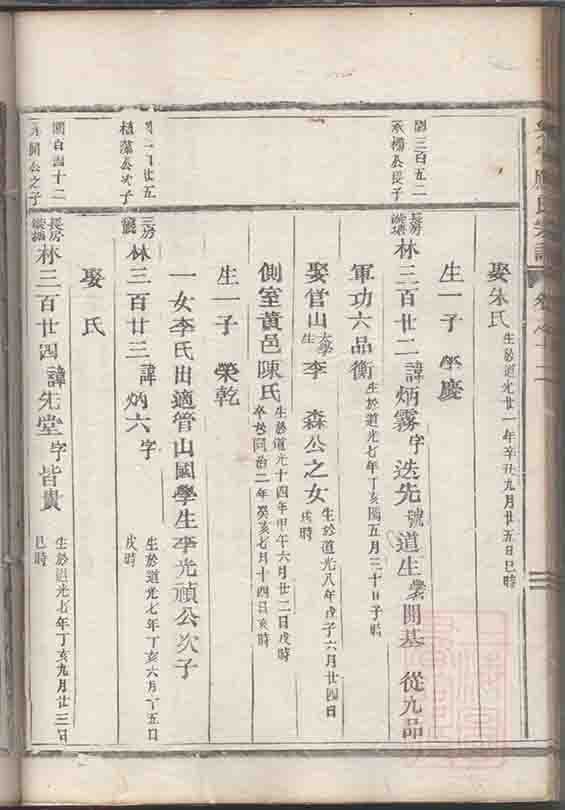 娶朱氏 生於道光廿一年辛丑九月廿五日巳時
生一子 學慶
開三百五二
公長子
長房
林三百廿二 諱炳霧 字迭先 號道生 開基 從九品
軍功六品銜 生於道光七年丁亥閏五月三十日子時
娶官山太學生李 森公之女 生於道光八年戊子六月廿四日戌時
側室黃邑陳氏 生於道光十四年甲午六月廿二日戌時
卒於同治二年癸亥七月十四日亥時
生一子 榮乾
一女李氏出適管山國學生李光禎公次子
公次子
三房
林三百廿三 諱炳六 字 生於道光七年丁亥六月十五日戌時
娶 氏
開百四十二
公之子
長房
林三百廿四 諱先堂 字皆貴 生於道光七年丁亥九月廿三日巳時